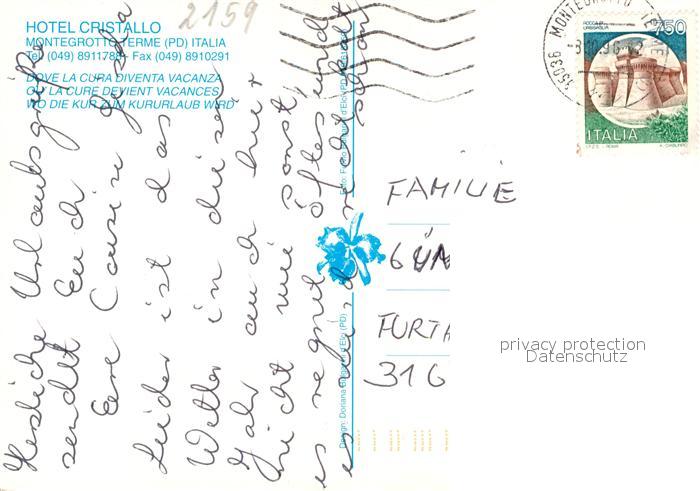 2159
HOTEL CRISTALLO
MONTEGROTTO TERME (PD) ITALIA
Tel. (049) 8911788 - Fax (049) 8910291
DOVE LA CURA DIVENTA VACANZA
OU LA CURE DEVIENT VACANCES
WO DIE KUR ZUM KURURLAUB WIRD
Herzliche Urlaubsgrüße
sendet Euch
Eure Cousine
Leider ist das
Wetter in dieses
Jahr auch hier
nicht wie sonst,
es regnet öfters, und
es ist kalt
35036 MONTEGROTTO
750
ROCCA DI
URBISAGLIA
ITALIA
I.P.Z.S. - ROMA
FAMILIE
FÜRTH
316
privacy protection
Datenschutz